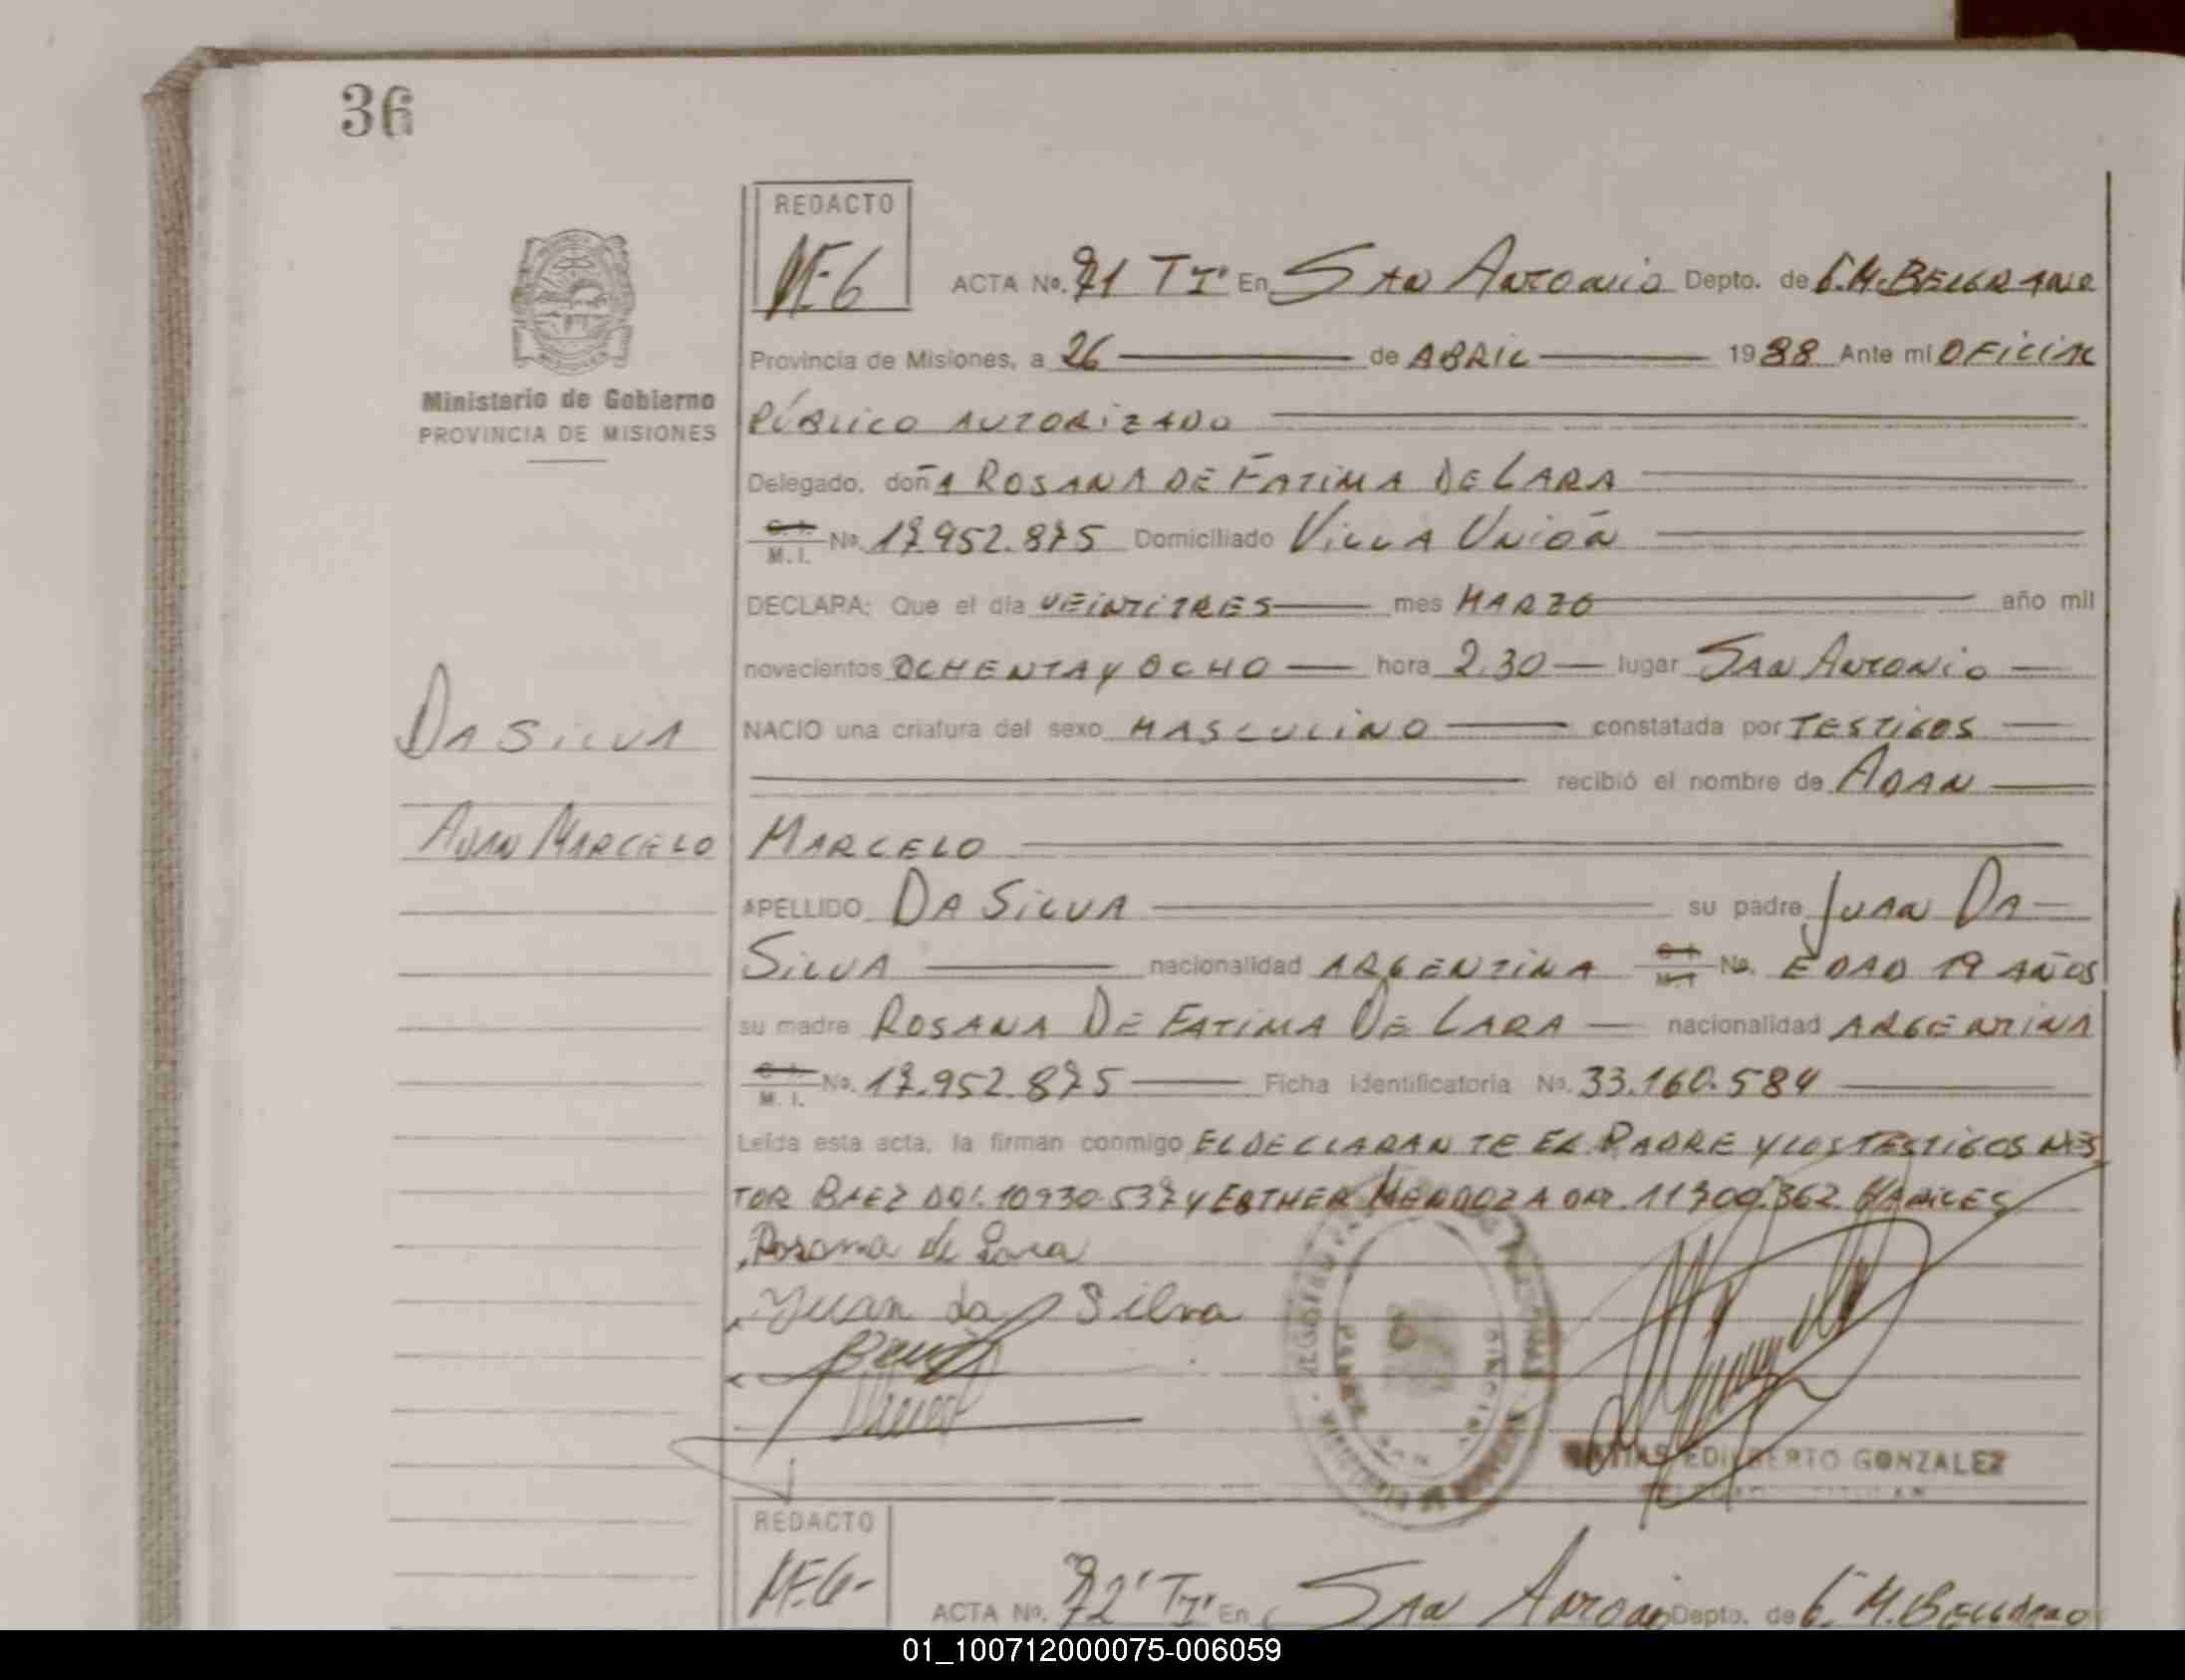 36
REDACTO
ME-6
ACTA No. 71 TI' En San Antonio Depto. de G.M.BELGRANO
Provincia de Misiones, a 26 de ABRIL 1988 Ante mí OFICIAL
PÚBLICO AUTORIZADO
Ministerio de Gobierno
PROVINCIA DE MISIONES
Delegado, doñA ROSANA DE FATIMA DE LARA
C. I.
M. I. No. 17.952.875 Domiciliado VILLA UNIÓN
DECLARA: Que el día VEINTITRES mes MARZO año mil
novecientos OCHENTA y OCHO hora 2.30 lugar SAN ANTONIO
DA SILVA
NACIO una criatura del sexo MASCULINO constatada por TESTIGOS
recibió el nombre de ADAN
ADAN MARCELO
MARCELO
APELLIDO DA SILVA su padre JUAN DA
SILVA nacionalidad ARGENTINA No. EDAD 19 AÑOS
su madre ROSANA DE FATIMA DE LARA nacionalidad ARGENTINA
M. I. No. 17.952.875 Ficha Identificatoria No. 33.160.584
Leída esta acta, la firman conmigo EL DECLARANTE EL PADRE Y LOS TESTIGOS NES
TOR BAEZ DNI. 10930.537 y ESTHER MENDOZA DNI. 11700.362. HABILES
Rosana de Lara
Juan da Silva
EDILBERTO GONZALEZ
REDACTO
ME-6-
ACTA No. 72' TI' En San Antonio Depto. de G.M.Belgrano
01_100712000075-006059